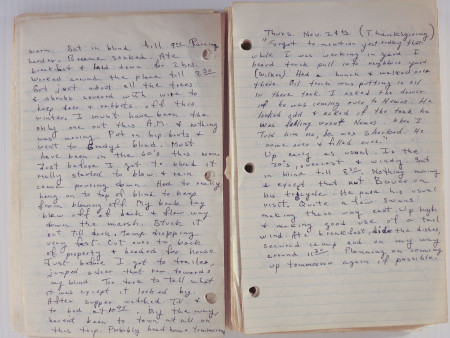 warm. Sat in blind till 9:00 Pouring
hard. Became soaked. Ate
breakfast & laid down for 2 hrs.
Worked around the place till 3:30
Got just about all the trees
& shrubs covered with wire to
keep deer & rabbits off this
winter. I must have been the
only one out this A.M. & nothing
was moving. Put on hip boots &
went to Sandys blind. Must
have been in the 60's this noon
Just before I got to blind it
really started to blow & rain
came pouring down. Had to really
hang on to top of blind to keep
from blowing off. My back tag
blew off of back & flew way
down the marsh. Stuck it
out till dark. Temp dropping
very fast. Cut over to back
of property & headed for house
Just before I got to trailer,
jumped a deer that ran towards
my blind. Too dark to tell what
it was except it looked big.
After supper watched TV &
to bed at 10:30. By the way
havent been to town at all on
this trip. Probably head home tomorrow
Thurs. Nov. 24th (Thanksgiving)
Forgot to mention yesterday that
while I was working in yard I
heard truck pull into neighbors yard
(Wilken). Had a hunch & walked over
there. Oil truck was putting in oil
in there tank. I asked the driver
if he was coming over to Nemes. He
looked odd & asked if the tank he
was filling wasnt Nemes. When I
told him no, he was shocked. He
came over & filled ours."
Up early as usual. In the
20's, overcast & windy. Sat
in blind till 8:30. Nothing moving
& except that nut Bauer on
his tricycle. He paid his usual
visit. Quite a few swans
making there way east up high
& making good use of a tail
wind. Ate breakfast, did the dishes,
secured camp and on my way
around 11:30. Planning on coming
up tomorrow again if possible.